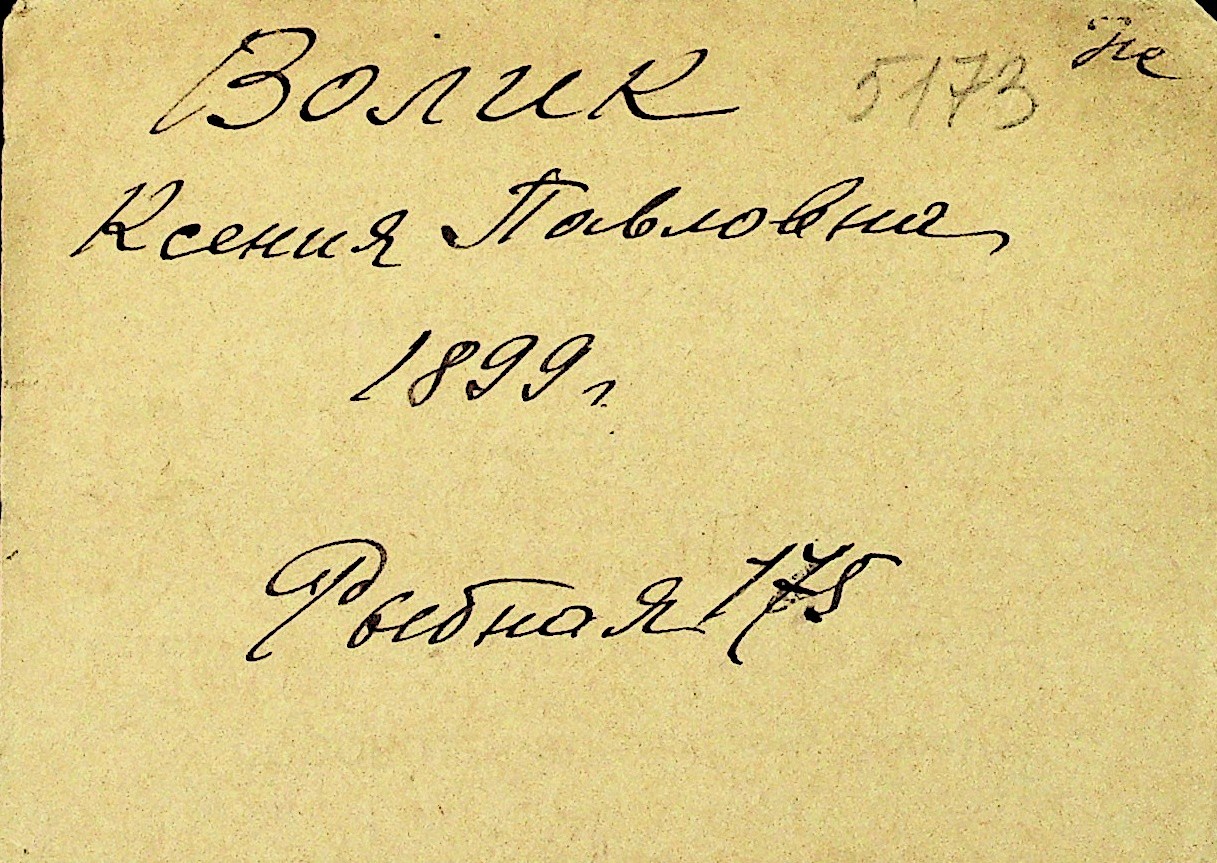 Волик 5173
Ксения Павловна
1899 г
Рыбная 175